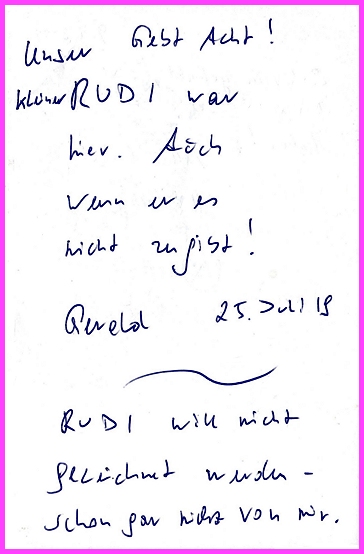 Gebt Acht!
Unser
kleiner RUDI war
hier. Auch
wenn er es
nicht zugibt!
Gerald 25. Juli 19
RUDI will nicht
gezeichnet werden –
schon gar nicht von mir.